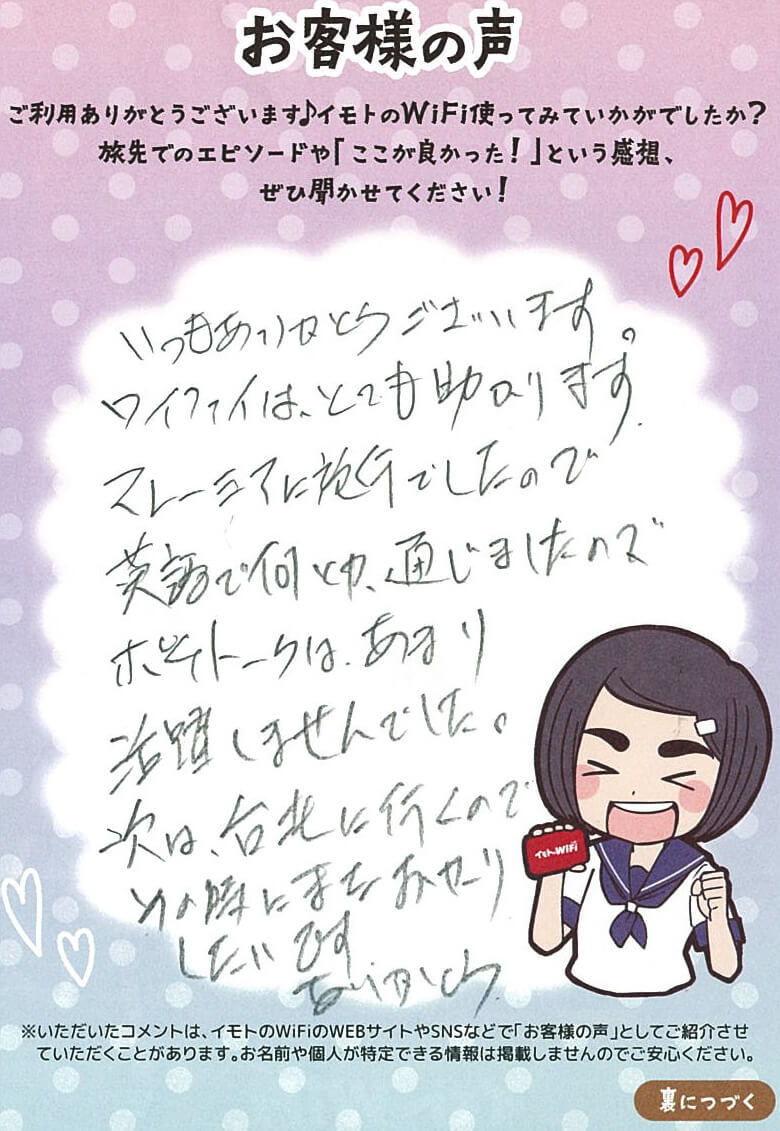 お客様の声
ご利用ありがとうございます♪イモトのWiFi使ってみていかがでしたか?
旅先でのエピソードや「ここが良かった!」という感想、
ぜひ聞かせてください!
いつもありがとうございます。
ワイファイは、とても助かります。
マレーシアに旅行でしたので
英語で何とか、通じましたので
ポケトークは、あまり
活躍しませんでした。
次は、台北に行くので
その時にまた
したいです
ありがとう
イモトのWiFi
※いただいたコメントは、イモトのWiFiのWEBサイトやSNSなどで「お客様の声」としてご紹介させ
ていただくことがあります。お名前や個人が特定できる情報は掲載しませんのでご安心ください。
裏につづく